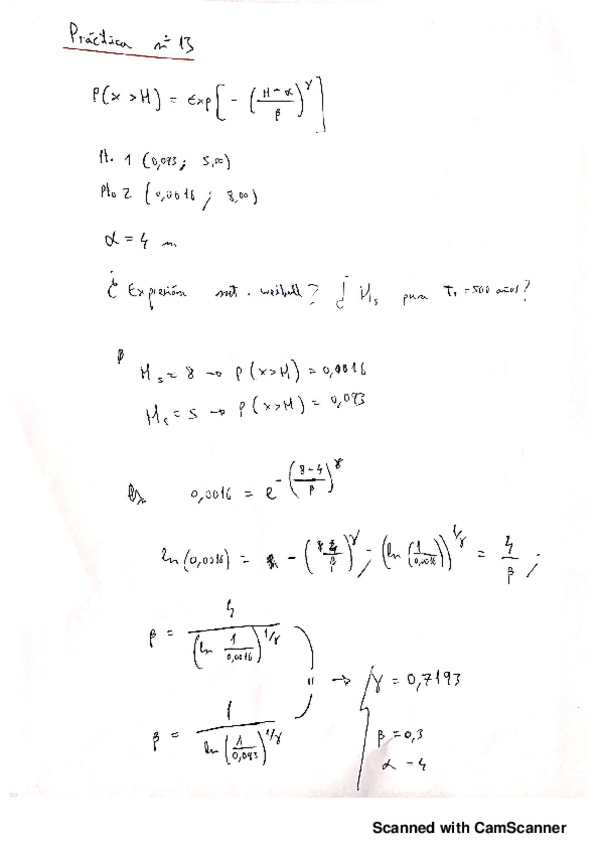 Práctica nº 13
P(x > H) = exp[- ((H - α)/β)^γ]
Pt. 1 (0,093; 5,00)
Pto 2 (0,0016; 8,00)
α = 4 m
¿Expresión Weibull? ¿Hs para Tr = 500 años?
Hs = 8 → P(x>H) = 0,0016
Hs = 5 → P(x>H) = 0,093
0,0016 = e^-((8-4)/β)^γ
ln(0,0016) = - (4/β)^γ; (ln(1/0,0016))^1/γ = 4/β;
β = 4/(ln 1/0,0016)^1/γ
β = 1/ln(1/0,093)^1/γ
" → γ = 0,7193
β = 0,3
α - 4
Scanned with CamScanner